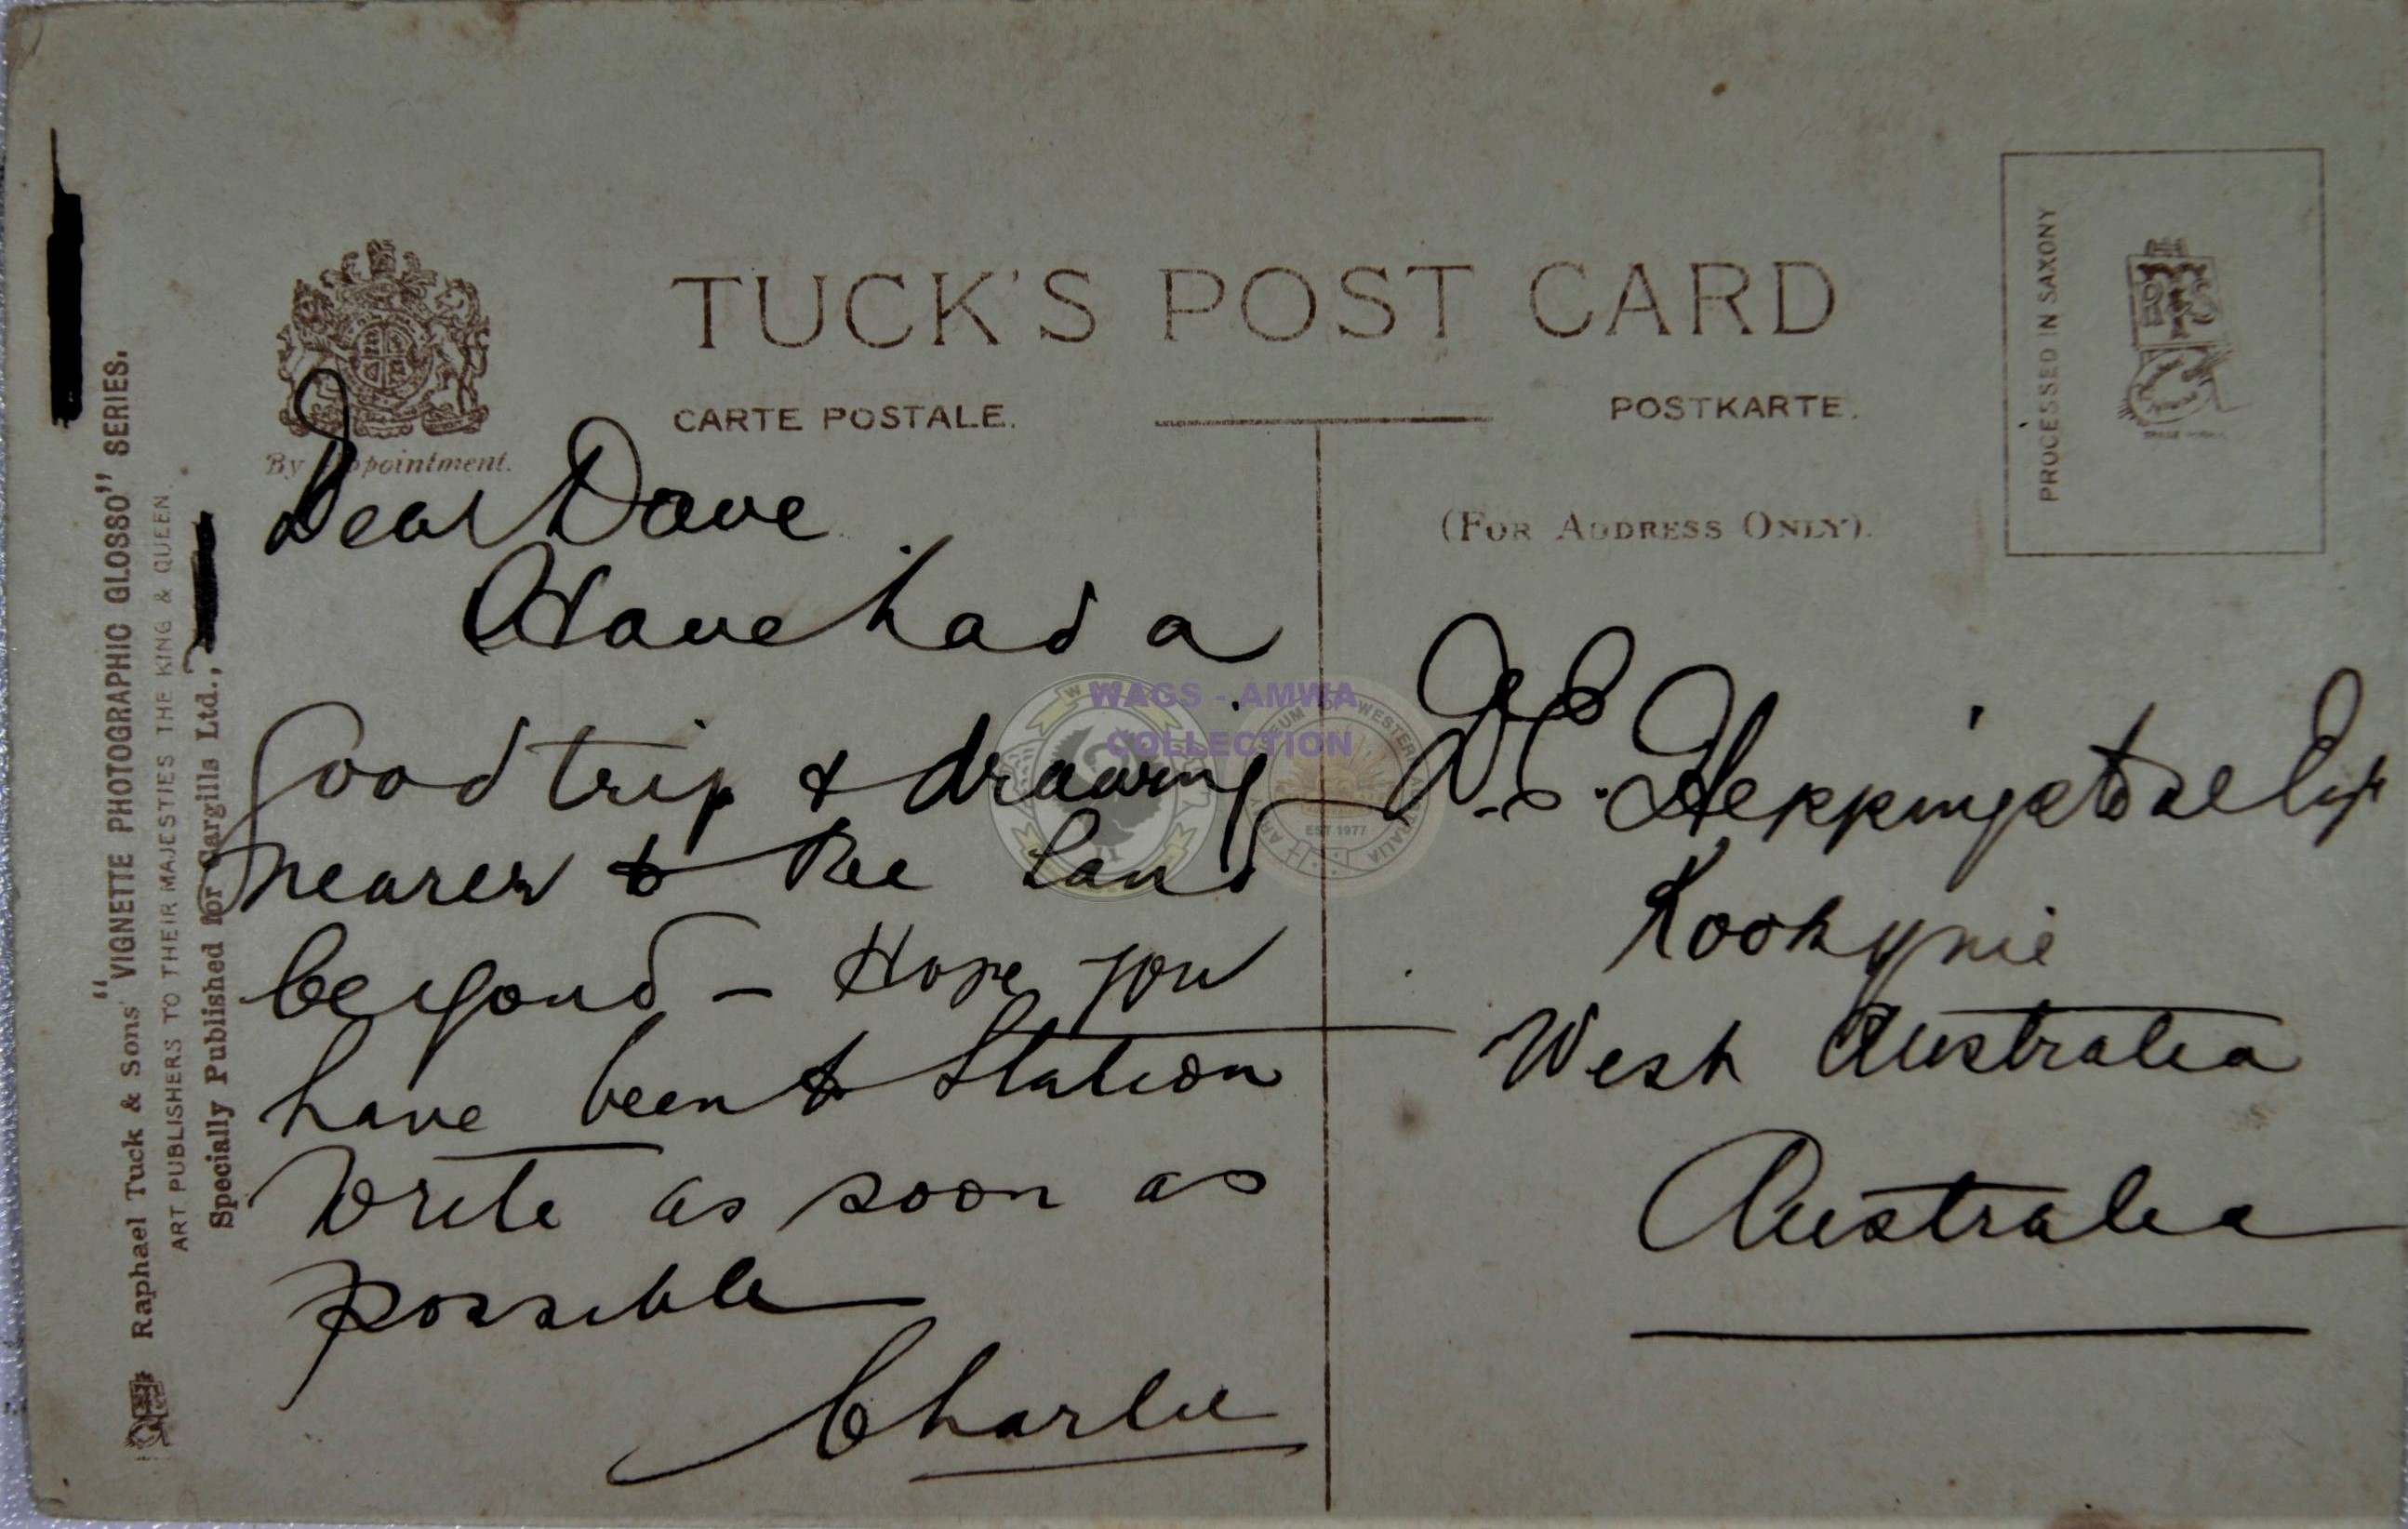 TUCK'S POST CARD
CARTE POSTALE.
POSTKARTE.
By Appointment.
(FOR ADDRESS ONLY).
PROCESSED IN SAXONY
"VIGNETTE PHOTOGRAPHIC GLOSSO" SERIES.
Raphael Tuck & Sons'
ART PUBLISHERS TO THEIR MAJESTIES THE KING & QUEEN.
Specially Published for Cargills Ltd.,
Dear Dave
Have had a
Good trip & drawing
nearer to the land
beyond – Hope you
have been to Station
Write as soon as
possible
Charlie
D. E. Heppingstone Esq
Kookynie
West Australia
Australia
WAGS - AMWA
COLLECTION
EST 1977